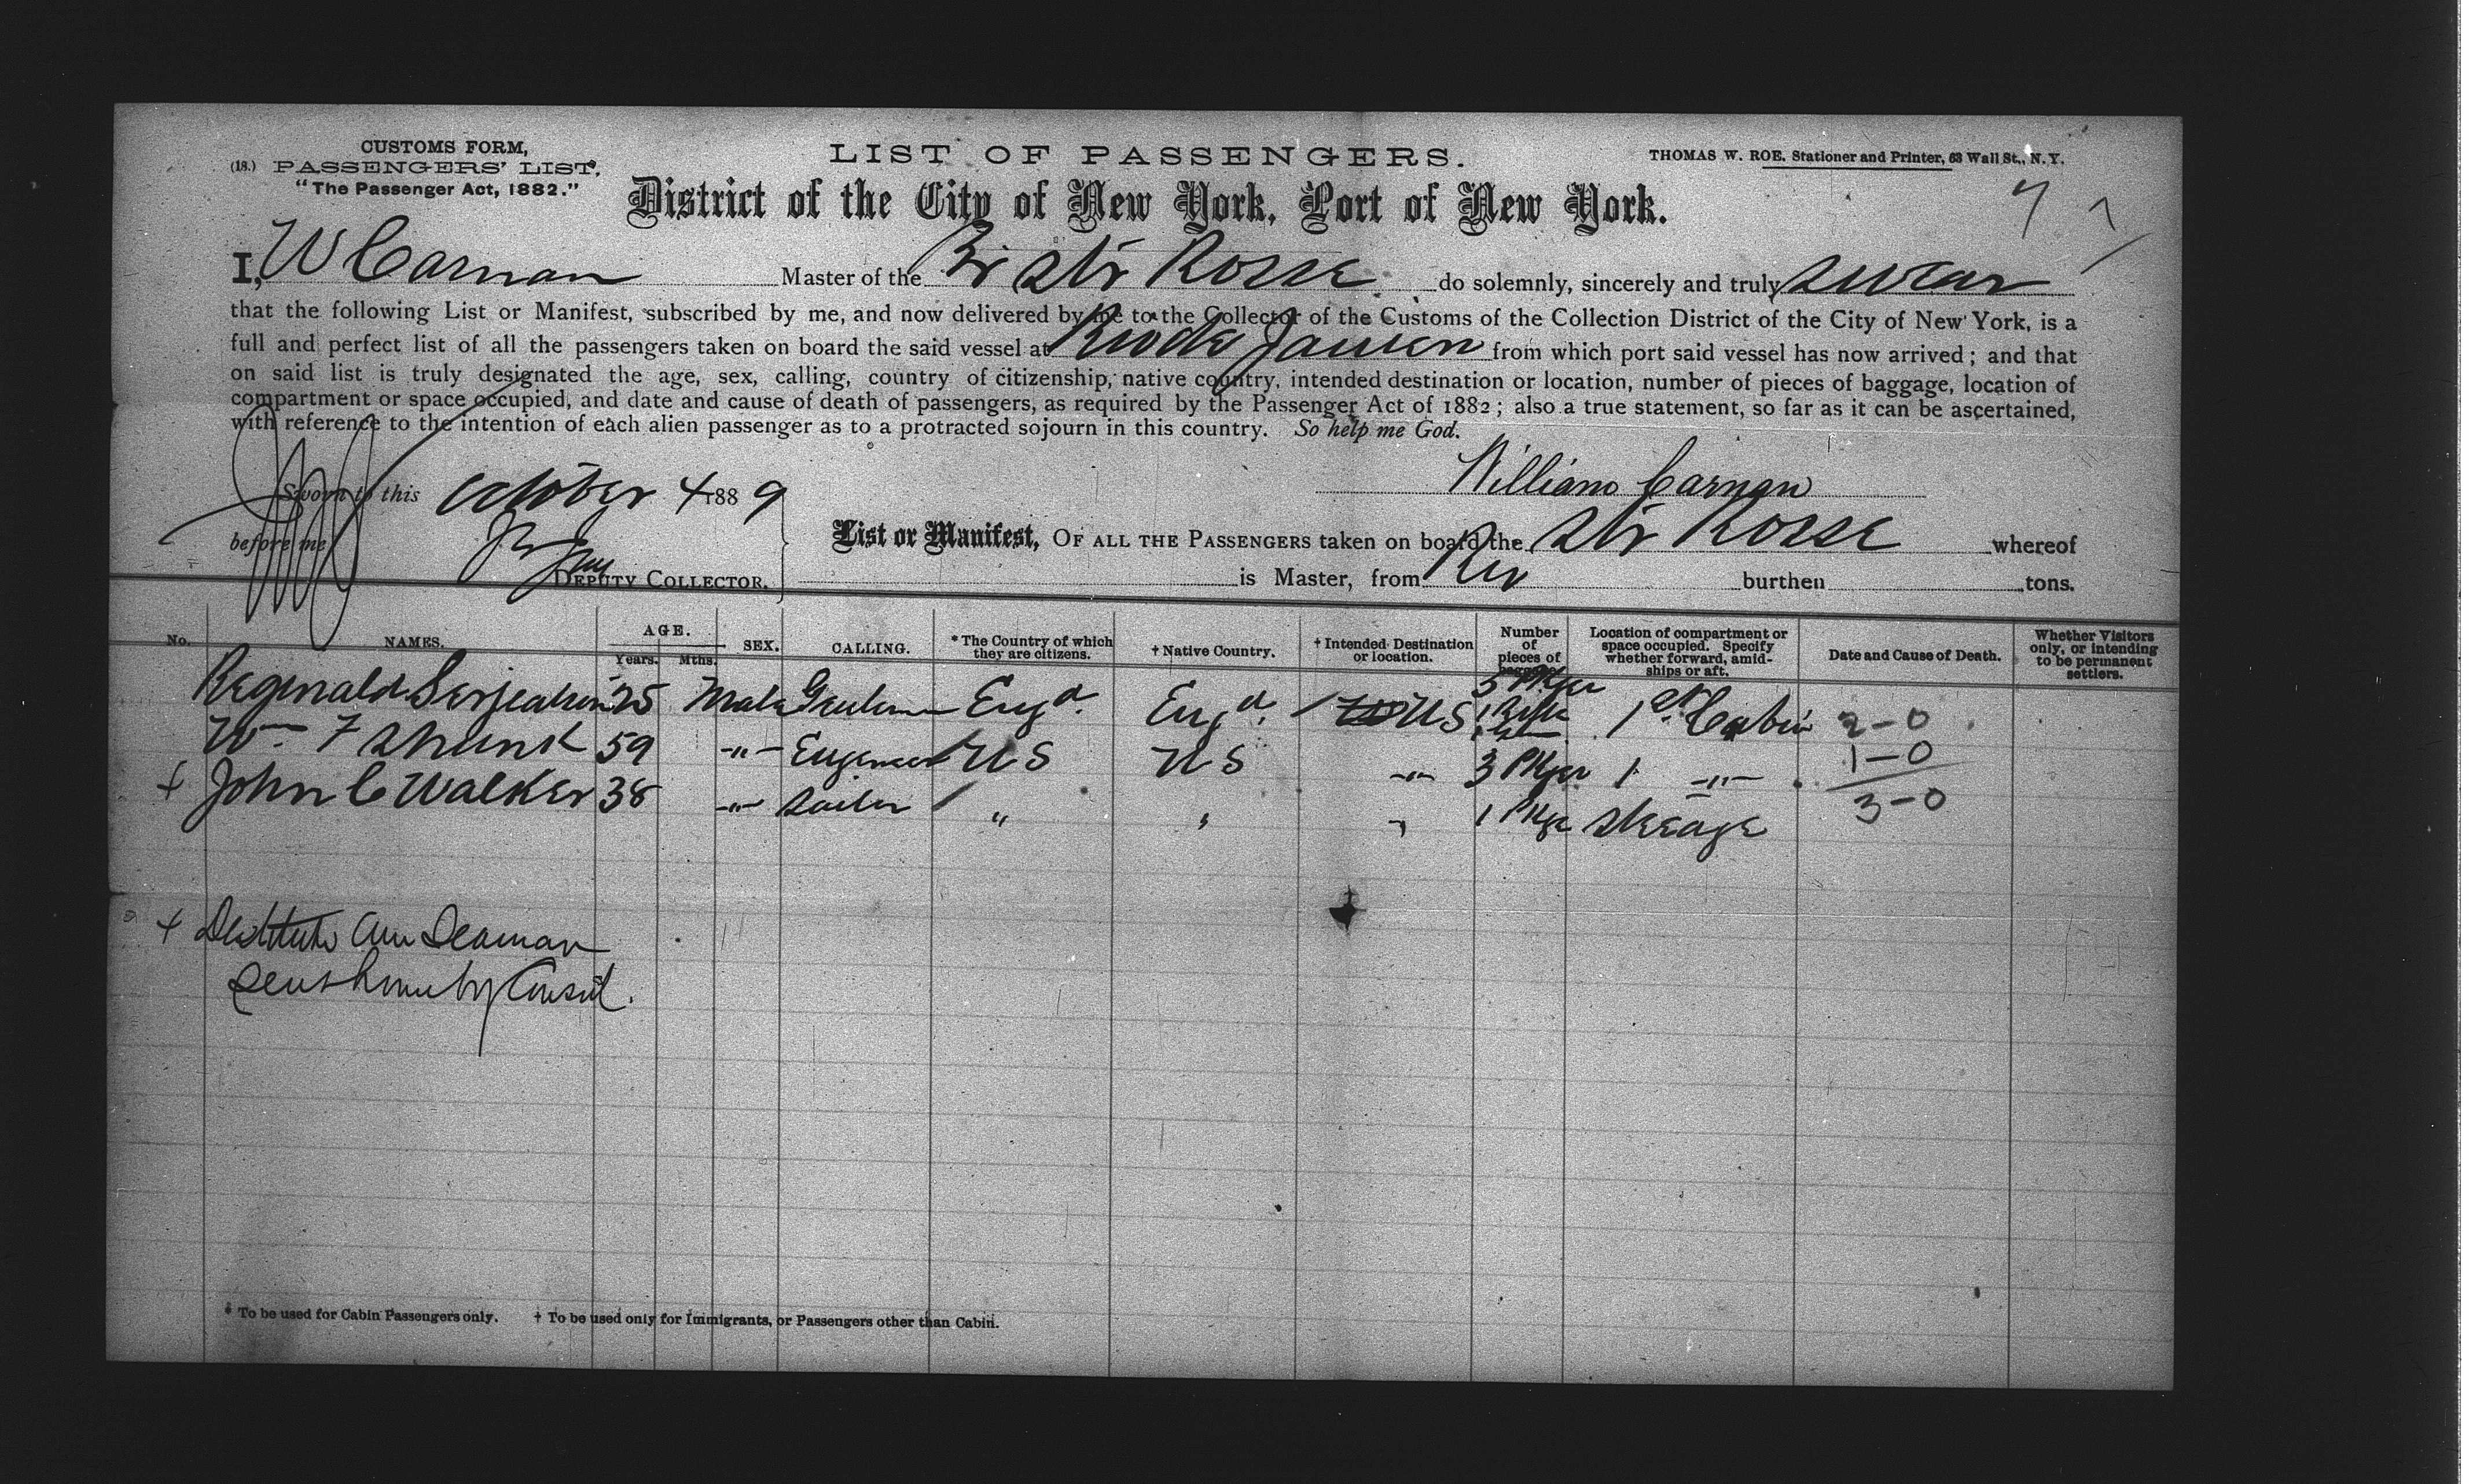 CUSTOMS FORM,
(18.) PASSENGERS' LIST,
"The Passenger Act, 1882."
LIST OF PASSENGERS.
THOMAS W. ROE. Stationer and Printer, 63 Wall St., N.Y.
District of the City of New York, Port of New York.
7
I, W Carnan Master of the Br Str Rosse do solemnly, sincerely and truly swear
that the following List or Manifest, subscribed by me, and now delivered by me to the Collector of the Customs of the Collection District of the City of New York, is a
full and perfect list of all the passengers taken on board the said vessel at Rio de Janeiro from which port said vessel has now arrived; and that
on said list is truly designated the age, sex, calling, country of citizenship, native country, intended destination or location, number of pieces of baggage, location of
compartment or space occupied, and date and cause of death of passengers, as required by the Passenger Act of 1882; also a true statement, so far as it can be ascertained,
with reference to the intention of each alien passenger as to a protracted sojourn in this country. So help me God.
William Carnan
Sworn to this October 4 1889
before me
DEPUTY COLLECTOR.
List or Manifest, OF ALL THE PASSENGERS taken on board the Str Rosse whereof
is Master, from Rio burthen tons.
No. NAMES. AGE. Years. Mths. SEX. CALLING. * The Country of which they are citizens. † Native Country. † Intended Destination or location. Number of pieces of baggage Location of compartment or space occupied. Specify whether forward, amidships or aft. Date and Cause of Death. Whether Visitors only, or intending to be permanent settlers.
Reginald 25 Male Gentleman Engd. Engd. US 3 Pkges 1 Rifle 1st Cabin 2-0
Wm F Shunk 59 -"- Engineer US US -"- 3 Pkges 1 -"- 1-0
+ John C Walker 38 -"- Sailor " " " 1 Pkge Steerage 3-0
+ Destitute Am Seaman
sent home by Consul.
* To be used for Cabin Passengers only. † To be used only for Immigrants, or Passengers other than Cabin.